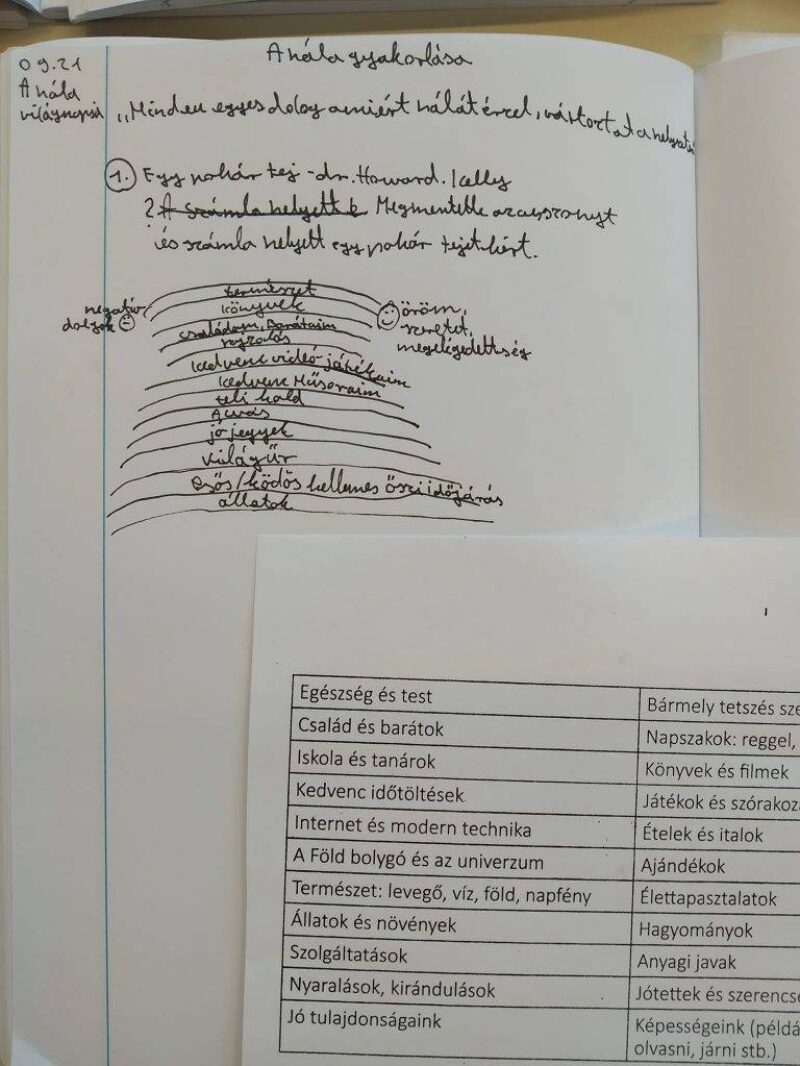 09.21
A hála
világnapja
A hála gyakorlása
„Minden egyes dolog amiért hálát érzel, változtat a helyzeten
1. Egy pohár tej - dr. Howard. Kelly
2 A számla helyett Megmentette az asszonyt
és számla helyett egy pohár tejet kért.
negatív
dolgok
természet
könyvek
családom, Barátaim
rajzolás
kedvenc videó-játékaim
kedvenc Műsoraim
teli hold
Alvás
jó jegyek
világűr
esős/ködös kellemes őszi időjárás
állatok
öröm,
szeretet,
megelégedettség
Egészség és test
Bármely tetszés sze
Család és barátok
Napszakok: reggel,
Iskola és tanárok
Könyvek és filmek
Kedvenc időtöltések
Játékok és szórakoz
Internet és modern technika
Ételek és italok
A Föld bolygó és az univerzum
Ajándékok
Természet: levegő, víz, föld, napfény
Élettapasztalatok
Állatok és növények
Hagyományok
Szolgáltatások
Anyagi javak
Nyaralások, kirándulások
Jótettek és szerencsé
Jó tulajdonságaink
Képességeink (példá
olvasni, járni stb.)